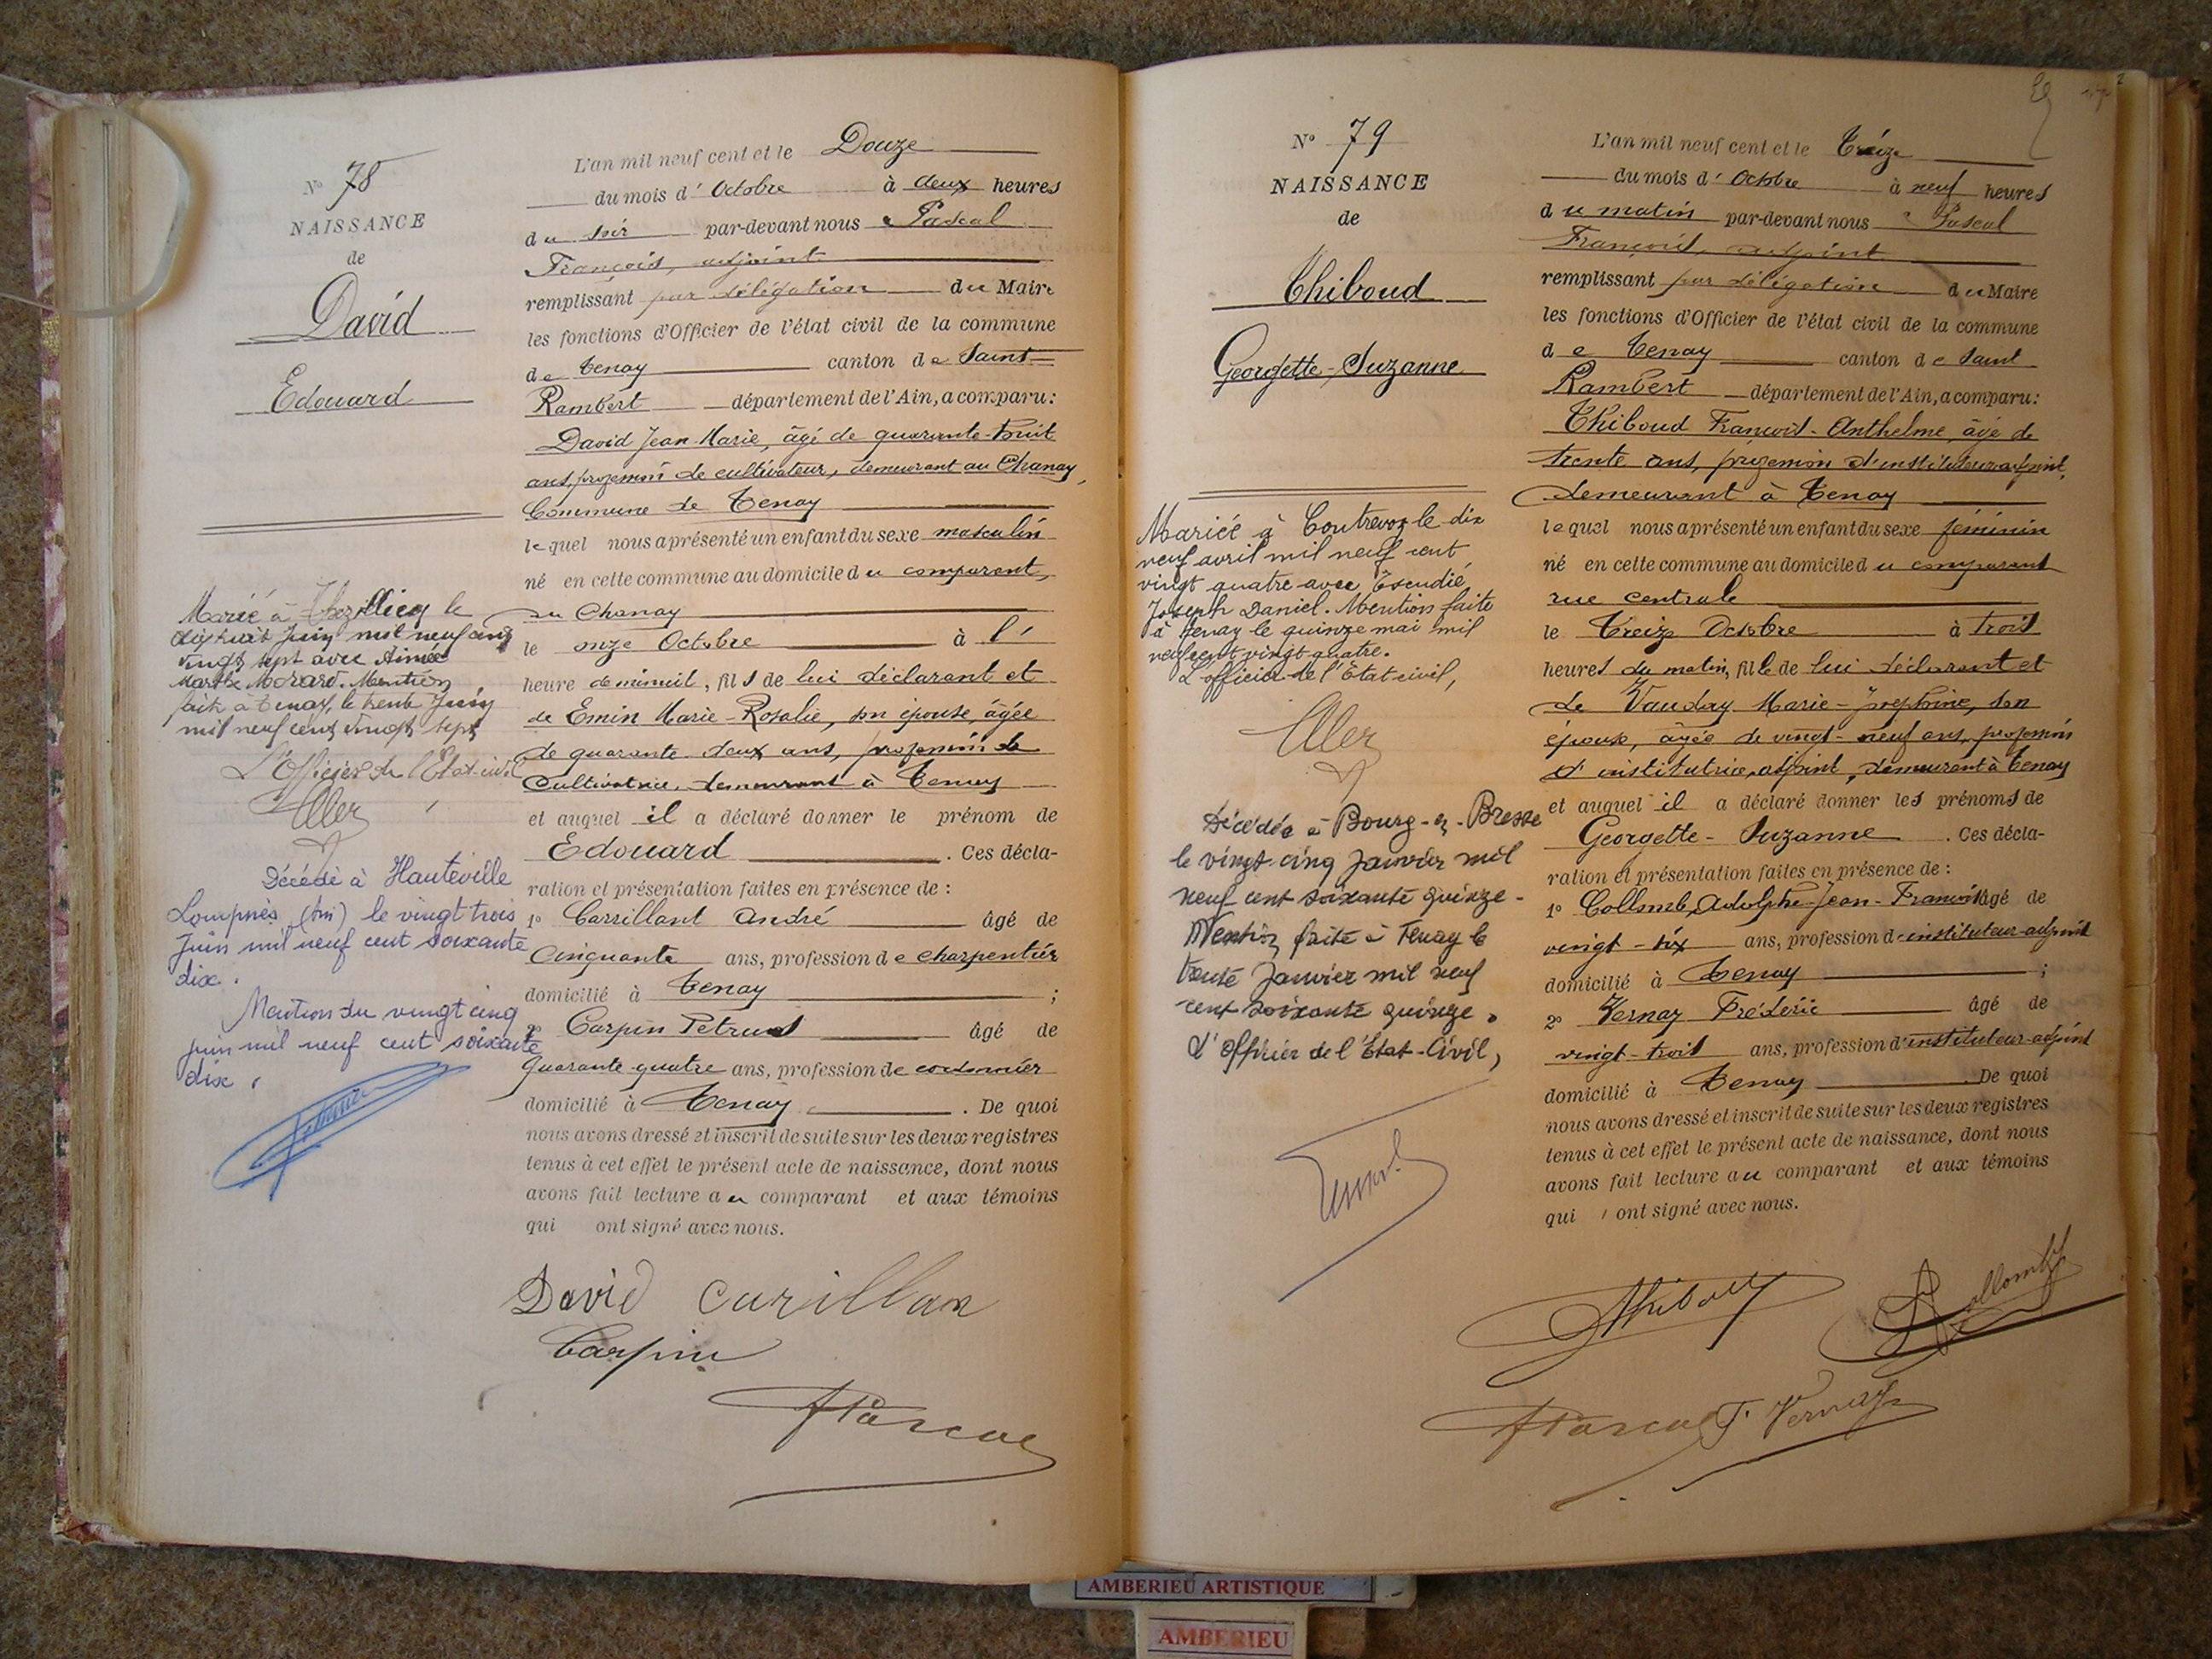 N° 78
NAISSANCE
de
David
Edouard
Marié à Thézillieu le
dix huit Juin mil neuf cent
vingt sept avec Aimée
Marthe Morard. Mention
faite à Tenay, le trente Juin
mil neuf cent vingt sept
L'Officier de l'Etat-civil
Décédé à Hauteville
Lompnès (Ain) le vingt trois
juin mil neuf cent soixante
dix.
Mention du vingt cinq
juin mil neuf cent soixante
dix.
L'an mil neuf cent et le Douze
du mois d'Octobre à deux heures
du soir par-devant nous Pascal
François, adjoint
remplissant par délégation du Maire
les fonctions d'Officier de l'état civil de la commune
de Tenay canton de Saint-
Rambert département de l'Ain, a comparu:
David Jean-Marie, âgé de quarante-huit
ans, profession de cultivateur, demeurant au Chanay,
Commune de Tenay
lequel nous a présenté un enfant du sexe masculin
né en cette commune au domicile du comparant,
au Chanay
le onze Octobre à l'
heure de minuit, fils de lui déclarant et
de Emin Marie-Rosalie, son épouse, âgée
de quarante-deux ans, profession de
cultivatrice, demeurant à Tenay
et auquel il a déclaré donner le prénom de
Edouard. Ces décla-
ration et présentation faites en présence de :
1° Carrillant André âgé de
Cinquante ans, profession de charpentier
domicilié à Tenay ;
2° Carpin Petrus âgé de
Quarante-quatre ans, profession de cordonnier
domicilié à Tenay. De quoi
nous avons dressé et inscrit de suite sur les deux registres
tenus à cet effet le présent acte de naissance, dont nous
avons fait lecture au comparant et aux témoins
qui ont signé avec nous.
David Curillan
Carpin
Pascal
N° 79
NAISSANCE
de
Thiboud
Georgette-Suzanne
Mariée à Contrevoz le dix
neuf avril mil neuf cent
vingt quatre avec Escudié
Joseph Daniel. Mention faite
à Tenay le quinze mai mil
neuf cent vingt quatre.
L'officier de l'Etat civil,
Décédée à Bourg-en-Bresse
le vingt-cinq Janvier mil
neuf cent soixante quinze-
Mention faite à Tenay le
trente Janvier mil neuf
cent soixante quinze.
L'Officier de l'Etat-Civil,
L'an mil neuf cent et le Treize
du mois d'Octobre à neuf heures
du matin par-devant nous Pascal
François, adjoint
remplissant par délégation du Maire
les fonctions d'Officier de l'état civil de la commune
de Tenay canton de Saint
Rambert département de l'Ain, a comparu:
Thiboud François-Anthelme, âgé de
trente ans, profession d'instituteur-adjoint,
demeurant à Tenay
lequel nous a présenté un enfant du sexe féminin
né en cette commune au domicile du comparant
rue centrale
le Treize Octobre à trois
heures du matin, fille de lui déclarant et
de Vauday Marie-Joséphine, son
épouse, âgée de vingt-neuf ans, profession
d'institutrice adjoint, demeurant à Tenay
et auquel il a déclaré donner les prénoms de
Georgette-Suzanne. Ces décla-
ration et présentation faites en présence de :
1° Collomb, Adolphe-Jean-François âgé de
vingt-six ans, profession d'instituteur-adjoint
domicilié à Tenay ;
2° Vernay Frédéric âgé de
vingt-trois ans, profession d'instituteur-adjoint
domicilié à Tenay. De quoi
nous avons dressé et inscrit de suite sur les deux registres
tenus à cet effet le présent acte de naissance, dont nous
avons fait lecture au comparant et aux témoins
qui ont signé avec nous.
Thiboud
Collomb
Pascal F. Vernay
AMBERIEU ARTISTIQUE
AMBERIEU